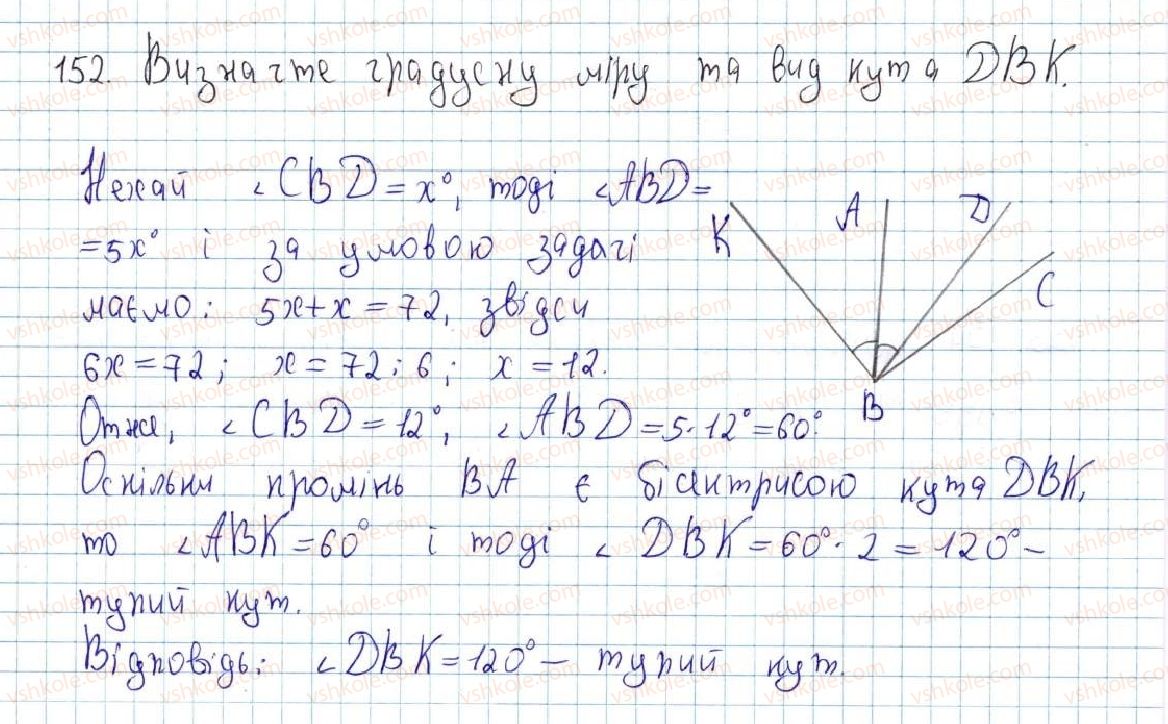 152. Визначте градусну міру та вид кута DBK.
Нехай ∠CBD = x°, тоді ∠ABD =
= 5x° і за умовою задачі
маємо: 5x + x = 72, звідси
6x = 72; x = 72 : 6; x = 12.
Отже, ∠CBD = 12°, ∠ABD = 5 · 12° = 60°.
Оскільки промінь BA є бісектрисою кута DBK,
то ∠ABK = 60° і тоді ∠DBK = 60° · 2 = 120° –
тупий кут.
Відповідь: ∠DBK = 120° – тупий кут.
K
A
D
C
B
vshkole.com